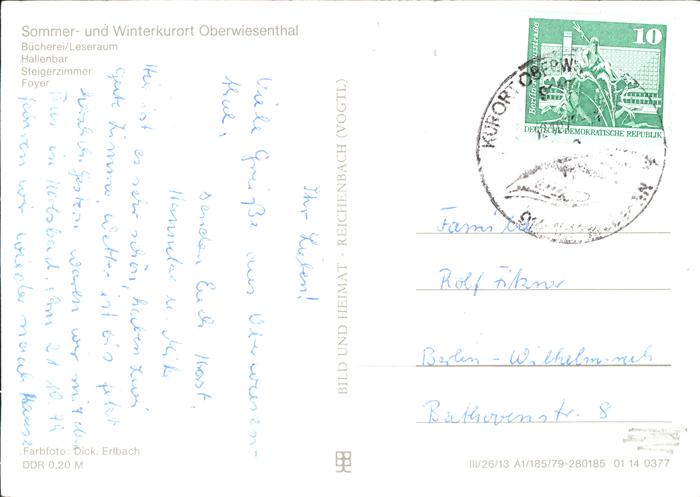 Sommer- und Winterkurort Oberwiesenthal
Bücherei/Leseraum
Hallenbar
Steigerzimmer
Foyer
Ihr Lieben!
Viele Grüße aus Oberwiesen-
thal,
senden Euch Horst,
Hannelore u. Mike
Hier ist es sehr schön, haben zwei
gute Zimmer, Wetter ist bis jetzt
Gestern waren wir mit dem
Bus in Am 21.10.79
fahren wir wieder nach Hause
Farbfoto: Dick, Erlbach
DDR 0,20 M
BILD UND HEIMAT · REICHENBACH (VOGTL)
10
DEUTSCHE DEMOKRATISCHE REPUBLIK
KURORT
Familie
Rolf
Berlin - Wilhelmsruh
8
III/26/13 A1/185/79-280185 01 14 0377